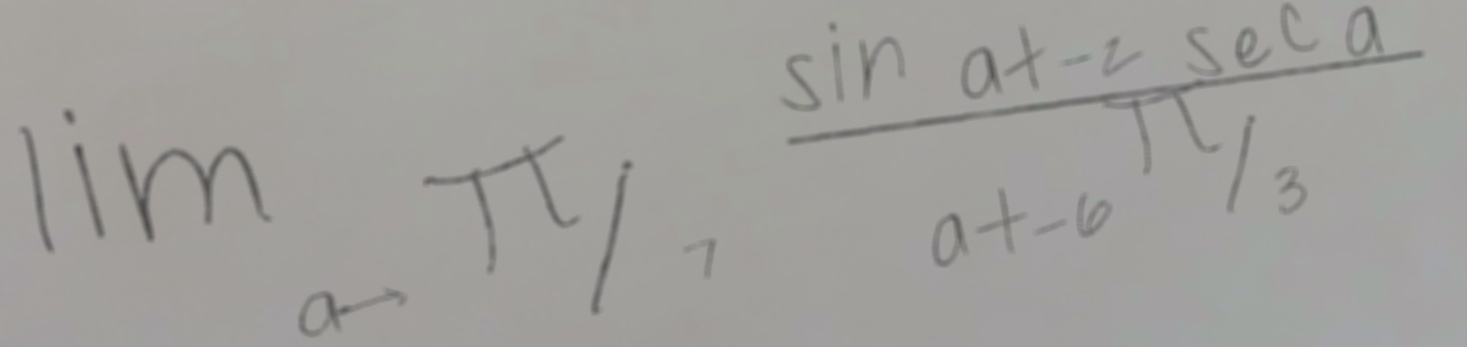 lim a→ π/7 sin a+-2 sec a
a+-6 π/3